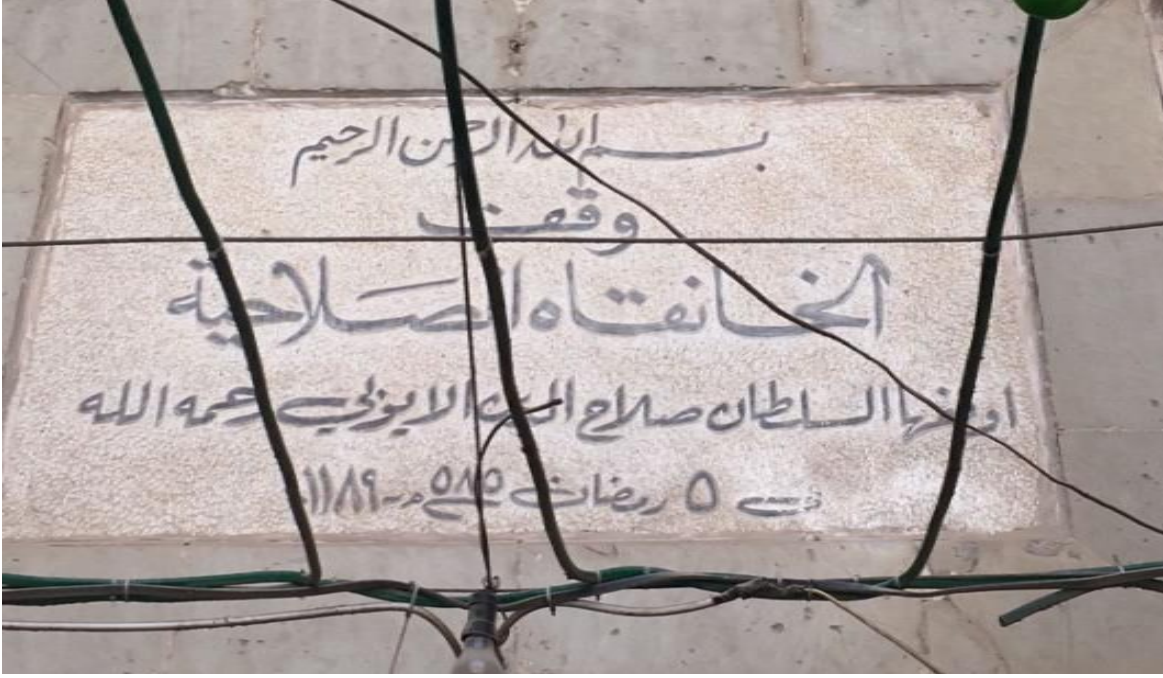 بسم الله الرحمن الرحيم
وقف
الخانقاه الصلاحية
اوقفها السلطان صلاح الدين الايوبي رحمه الله
في ٥ رمضان ٥٨٥هـ - ١١٨٩